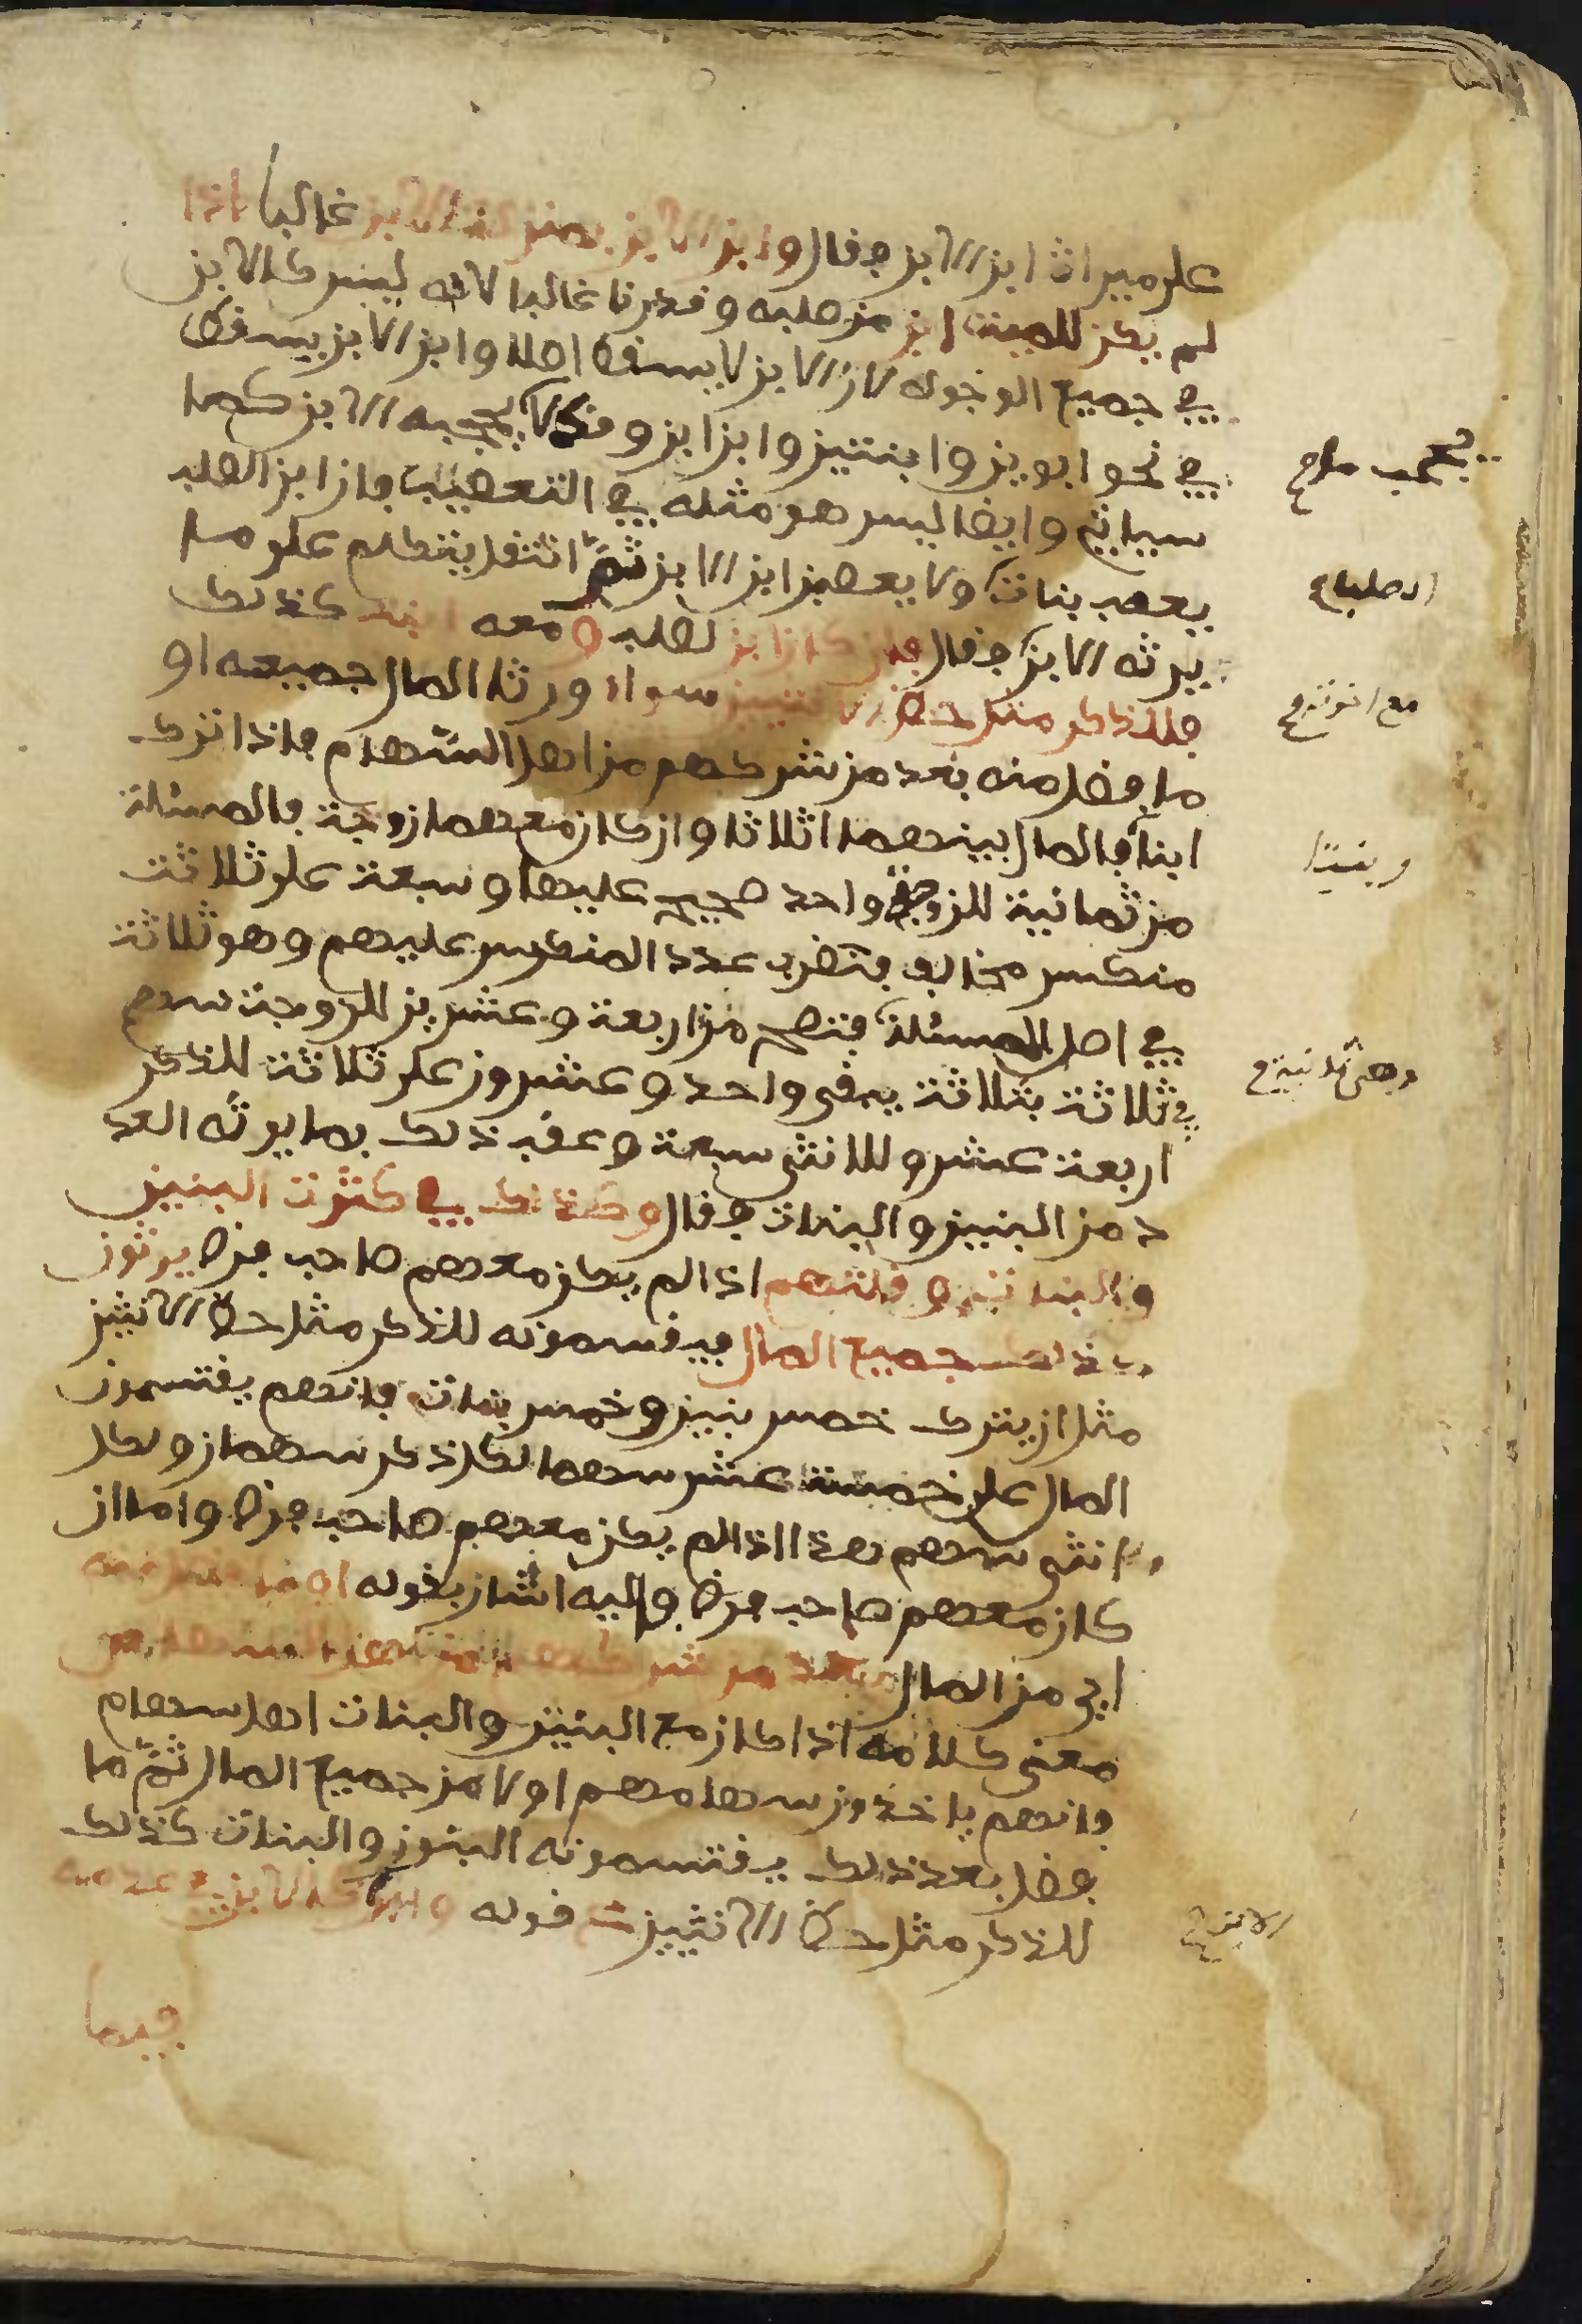 على ميراث ابن الابن فقال وابن الابن بمنزلة الابن غالبا اذا
لم يكن للميت ابن من صلبه وقدرنا غالبا لانه ليس كالابن
في جميع الوجوه لان الابن لا يسقط اصلا وابن الابن يسقط
في نحو ابوين وابنتين وابن ابن وقد لا يحجبه الابن كما
سياتي وايضا ليس هو مثله في التعصيب فان ابن الصلب
يعصب بنات ولا يعصبن ابن الابن ثم انتقل يتكلم على ما
يرثه الابن فقال فان كان ابن لصلب ومعه ابنة كذلك
فللذكر مثل حظ الانثيين سواء ورثا المال جميعه او
ما فضل منه بعد من شركهم من اهل السهام فاذا ترك
ابنا فالمال بينهما اثلاثا وان كان معهما زوجة فالمسئلة
من ثمانية للزوجة واحد صحيح عليها وسبعة على ثلاثة
منكسر مخالف فتضرب عدد المنكسر عليهم وهو ثلاثة
في اصل المسئلة فتصح من اربعة وعشرين للزوجة سهم
في ثلاثة بثلاثة يبقى واحد وعشرون على ثلاثة للذكر
اربعة عشر وللانثى سبعة وعقب ذلك بما يرثه العد
د من البنين والبنات فقال وكذلك في كثرت البنين
والبنات وقلتهم اذا لم يكن معهم صاحب فرض يرثون
كذلك جميع المال فيقسمونه للذكر مثل حظ الانثيين
مثل ان يترك خمس بنين وخمس بنات فانهم يقتسمون
المال على خمسة عشر سهما لكل ذكر سهمان ولكل
انثى سهم هذا اذا لم يكن معهم صاحب فرض واما ان
كان معهم صاحب فرض واليه اشار بقوله او ما فضل منه
اي من المال بعد من شركهم من اهل السهام
معنى كلامه اذا كان مع البنين والبنات اهل سهام
فانهم ياخذون سهامهم اولا من جميع المال ثم ما
فضل بعد ذلك يقتسمونه البنون والبنات كذلك
للذكر مثل حظ الانثيين قوله وابن الابن كالابن في عدمه
فيما
يحجب صح
الصلب صح
مع اخوته صح
وبنتا
وهي ثمانية صح
الابن صح